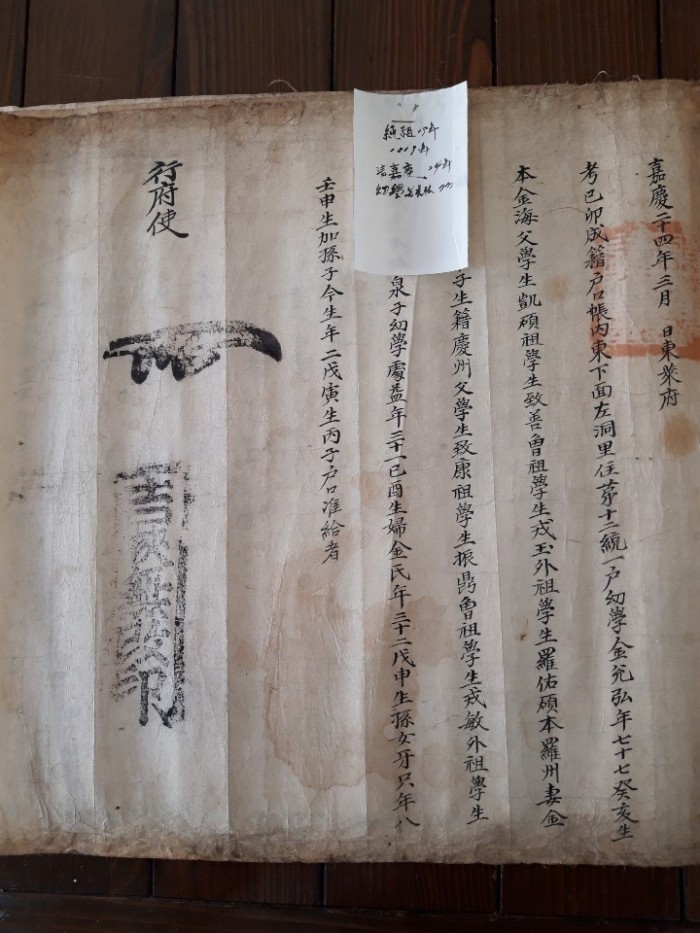 嘉慶二十四年三月 日東萊府
考己卯成籍戶口帳內東下面左洞里住第十二統一戶幼學金兌弘年七十七癸亥生
本金海父學生凱碩祖學生致善曾祖學生戎玉外祖學生羅佑碩本羅州妻金
子生籍慶州父學生致康祖學生振鼎曾祖學生戎敏外祖學生
泉子幼學處益年三十一己酉生婦金氏年三十二戊申生孫女牙只年八
壬申生加孫子今生年二戊寅生丙子戶口准給者
行府使
純祖19年
1819年
清嘉慶 24年
幼學